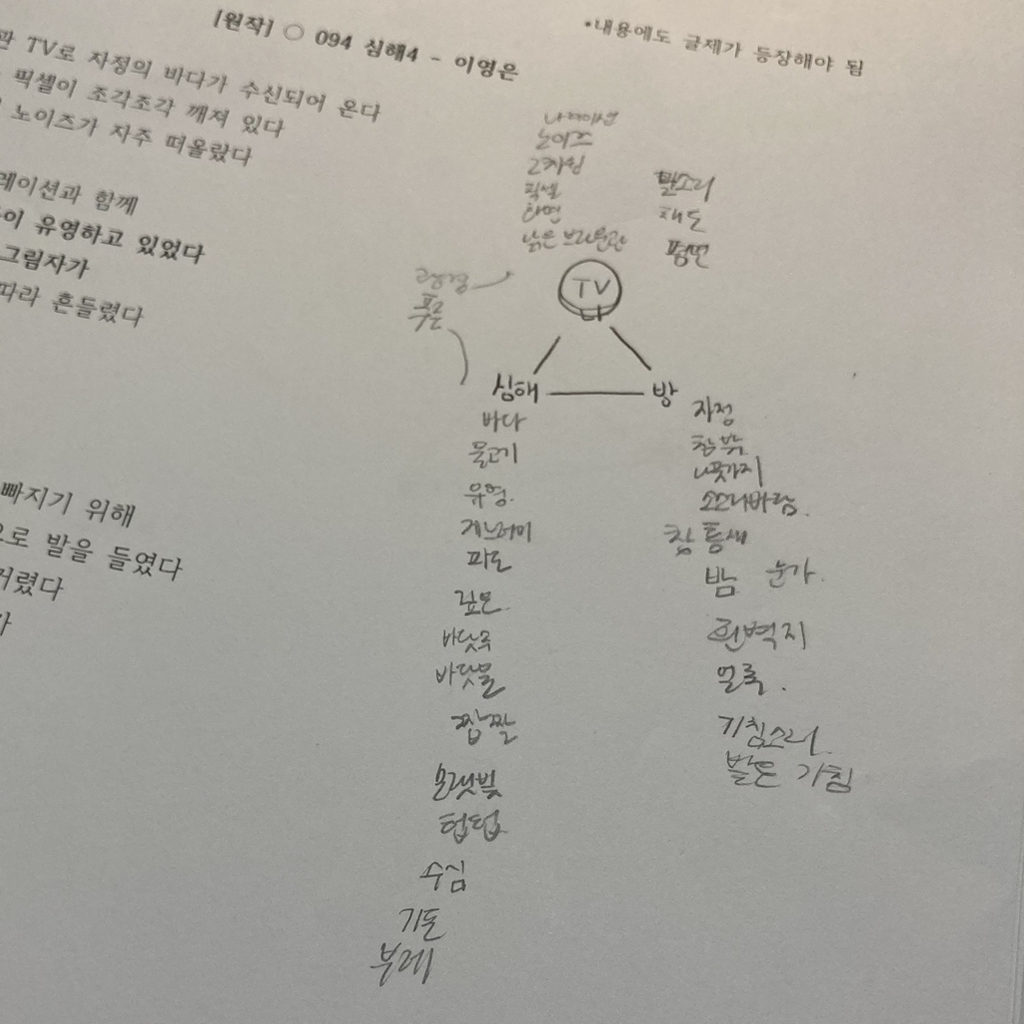 [원작] ○ 094 심해4 - 이영은
*내용에도 글제가 등장해야 됨
관 TV로 자정의 바다가 수신되어 온다
픽셀이 조각조각 깨져 있다
노이즈가 자주 떠올랐다
레이션과 함께
이 유영하고 있었다
그림자가
따라 흔들렸다
빠지기 위해
으로 발을 들였다
거렸다
나레이션
노이즈
고차원
픽셀
화면
낡은 브라운관
말소리
채도
평면
TV
푸른
심해
방
바다
물고기
유영
지느러미
파도
깊은
바닷속
바닷물
짭짤
모랫빛
텁텁
수심
기도
부레
자정
창밖
나뭇가지
소소리바람
창 틈새
밤 눈가
흰벽지
얼룩
기침소리
밭은 기침